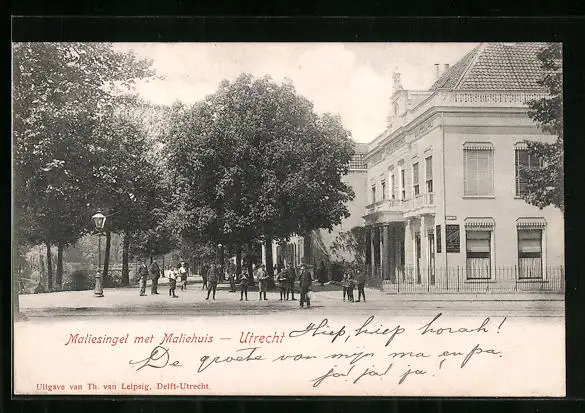 Maliesingel met Maliehuis — Utrecht
Hiep, hiep, horah!
De groete van mijn ma en pa.
ja! ja! ja!
Uitgave van Th. van Leipsig, Delft-Utrecht.